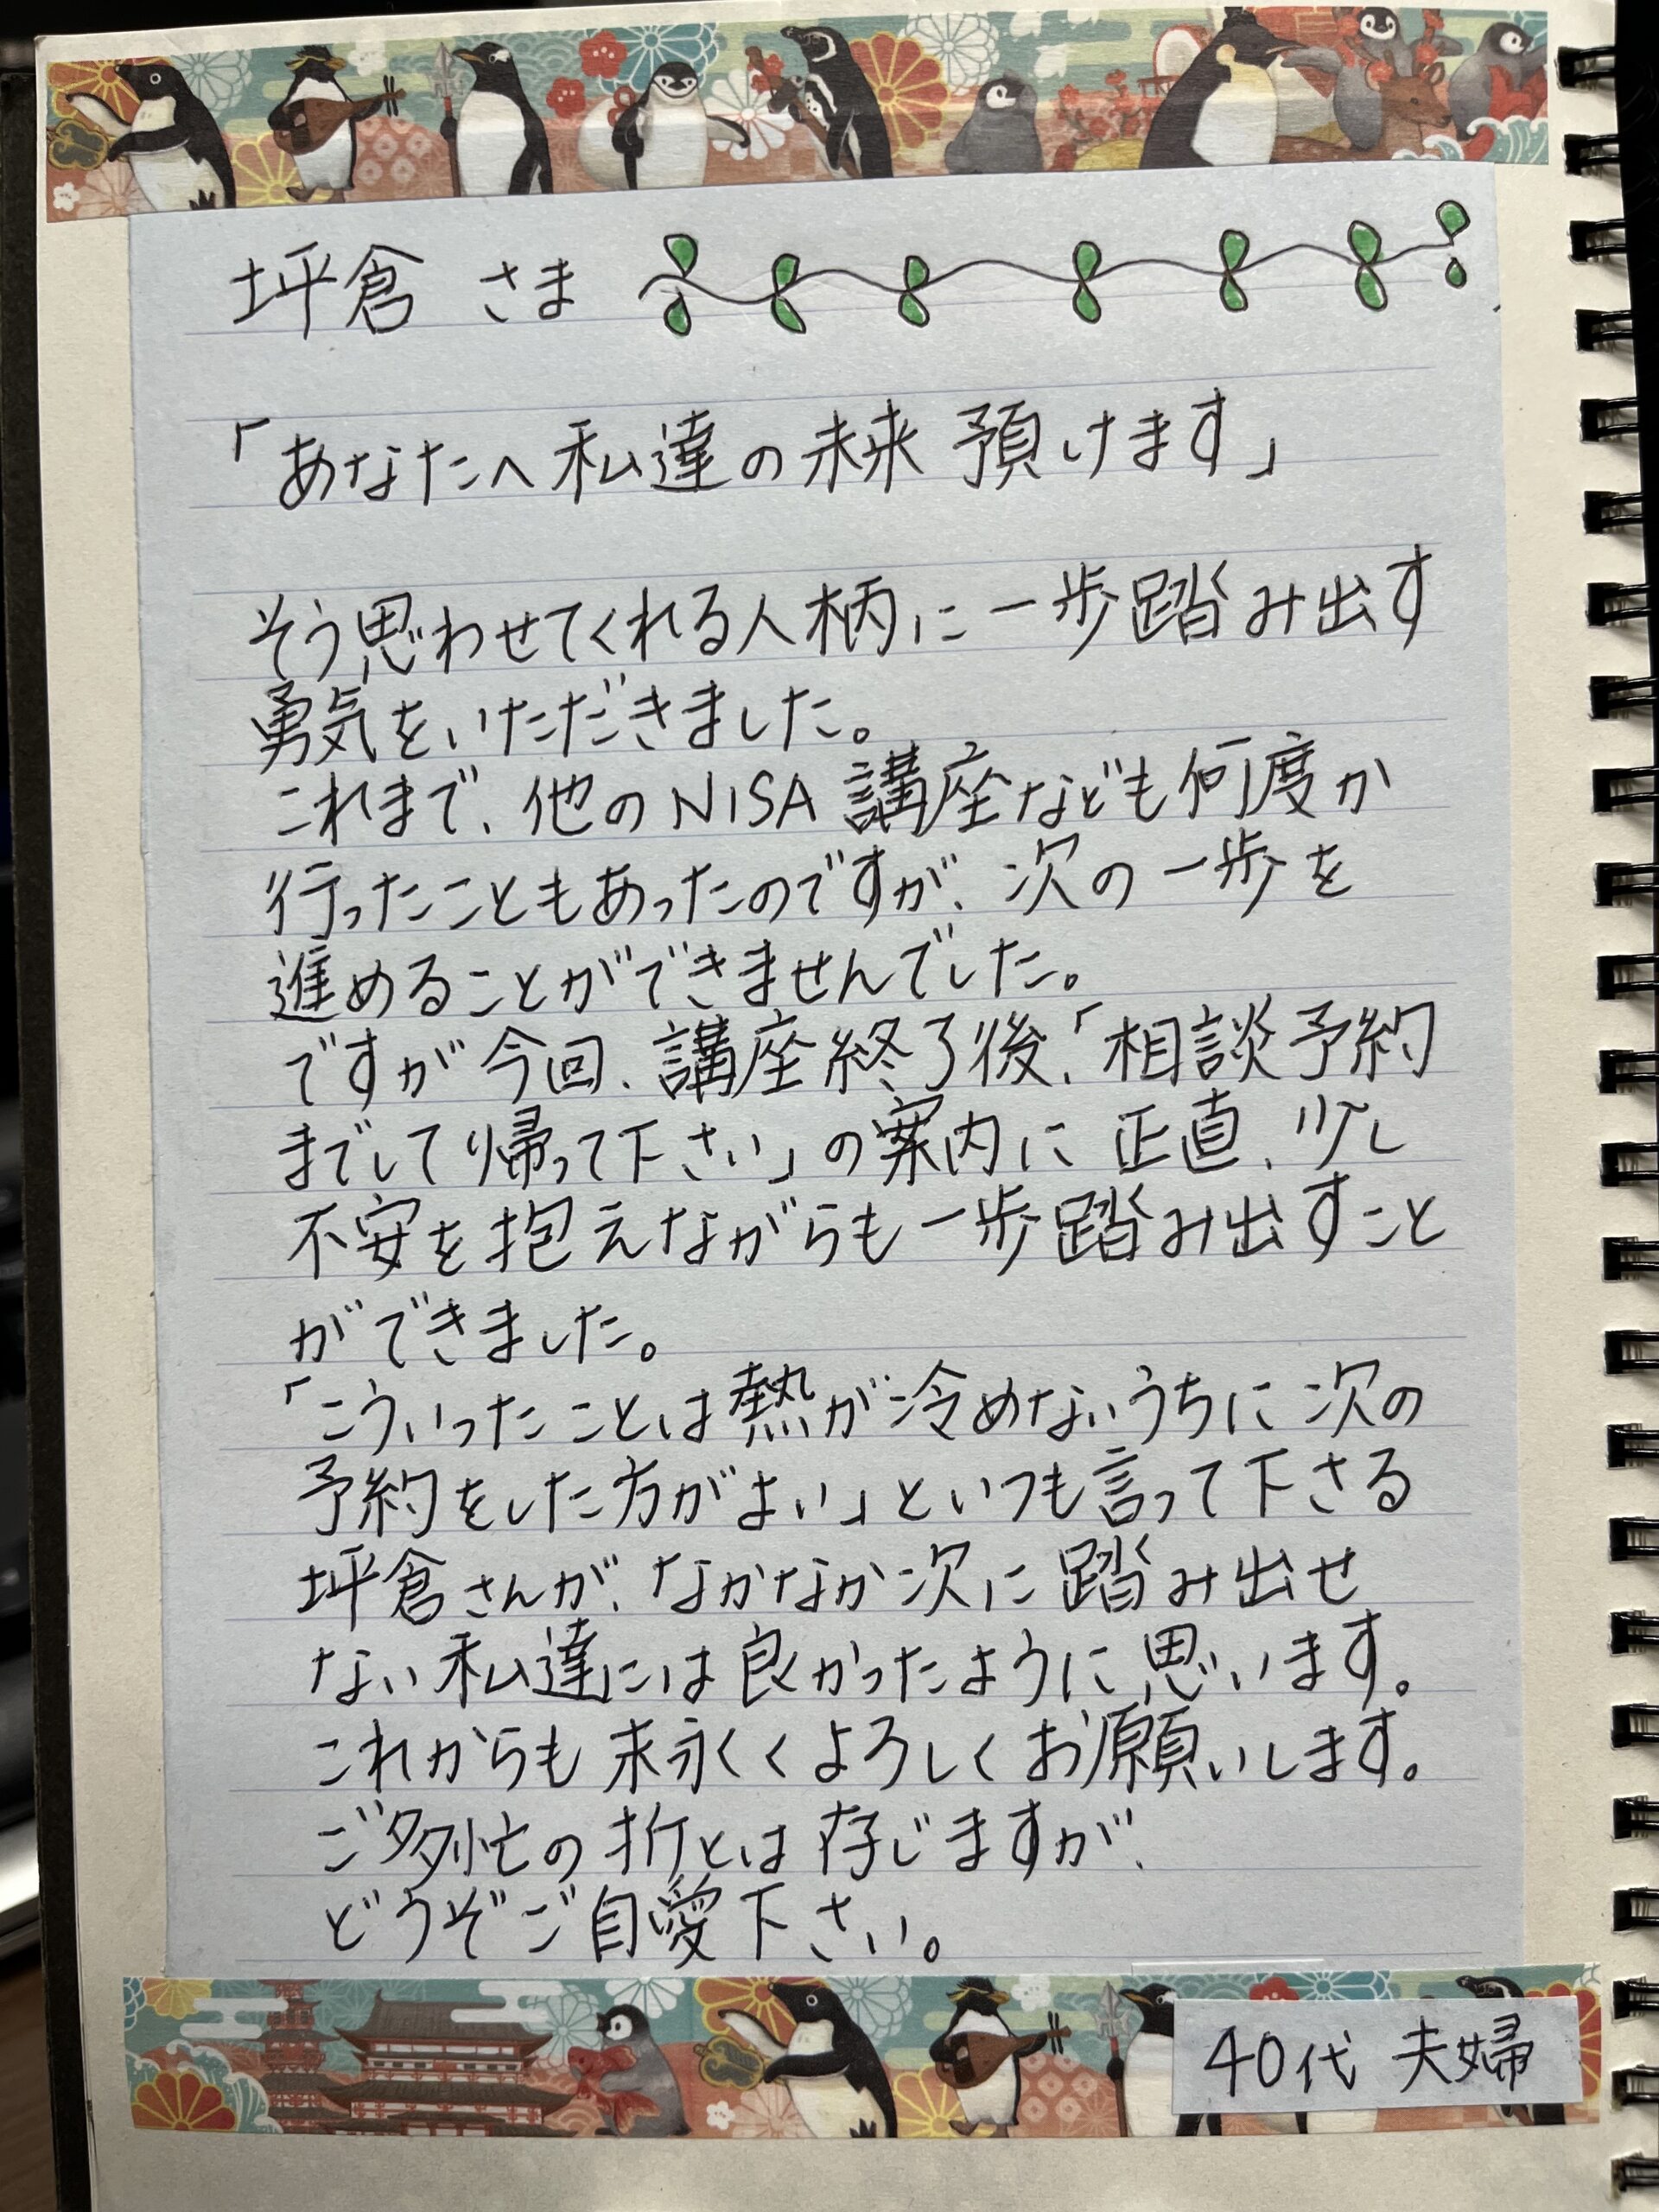 坪倉 さま
「あなたへ私達の未来 預けます」
そう思わせてくれる人柄に一歩踏み出す
勇気をいただきました。
これまで、他のNISA講座なども何度か
行ったこともあったのですが、次の一歩を
進めることができませんでした。
ですが今回、講座終了後、「相談予約
までして帰って下さい」の案内に正直、少し
不安を抱えながらも一歩踏み出すこと
ができました。
「こういったことは熱が冷めないうちに次の
予約をした方がよい」といつも言って下さる
坪倉さんが、なかなか次に踏み出せ
ない私達には良かったように思います。
これからも末永くよろしくお願いします。
ご多忙の折とは存じますが、
どうぞご自愛下さい。
40代 夫婦